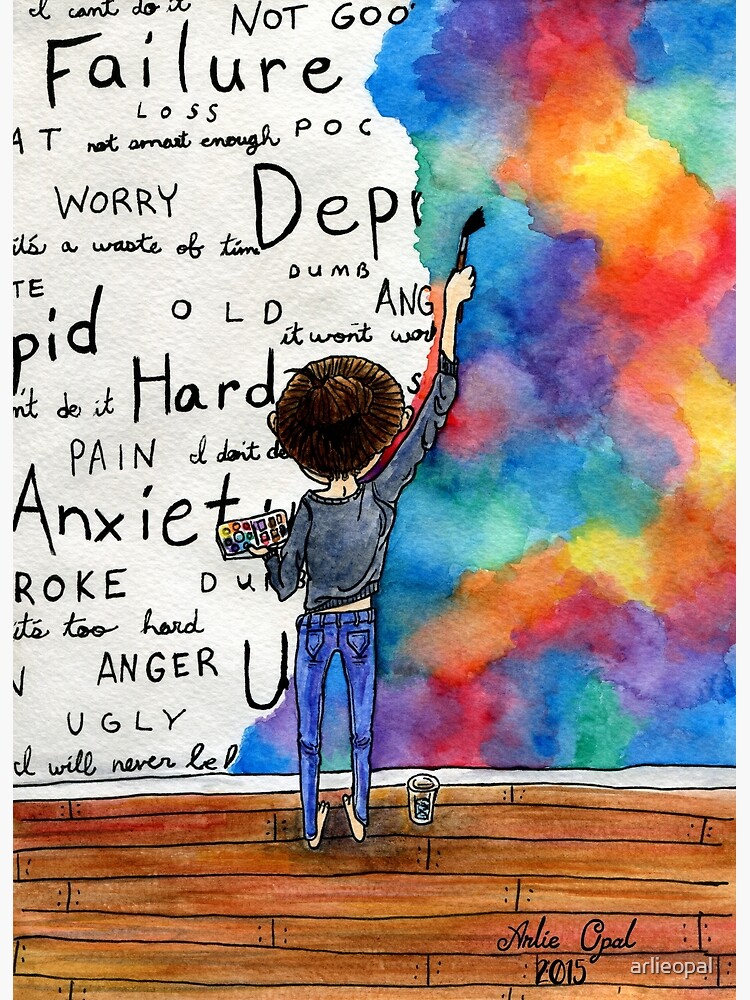 I can't do it
NOT GOO
Failure
LOSS
AT not smart enough POC
WORRY
Depr
it's a waste of time
DUMB
TE
OLD ANG
pid
it won't wor
n't do it Hard
S
PAIN I don't de
Anxiety
ROKE DUMB
it's too hard
ANGER U
UGLY
I will never be
Arlie Opal
2015
arlieopal